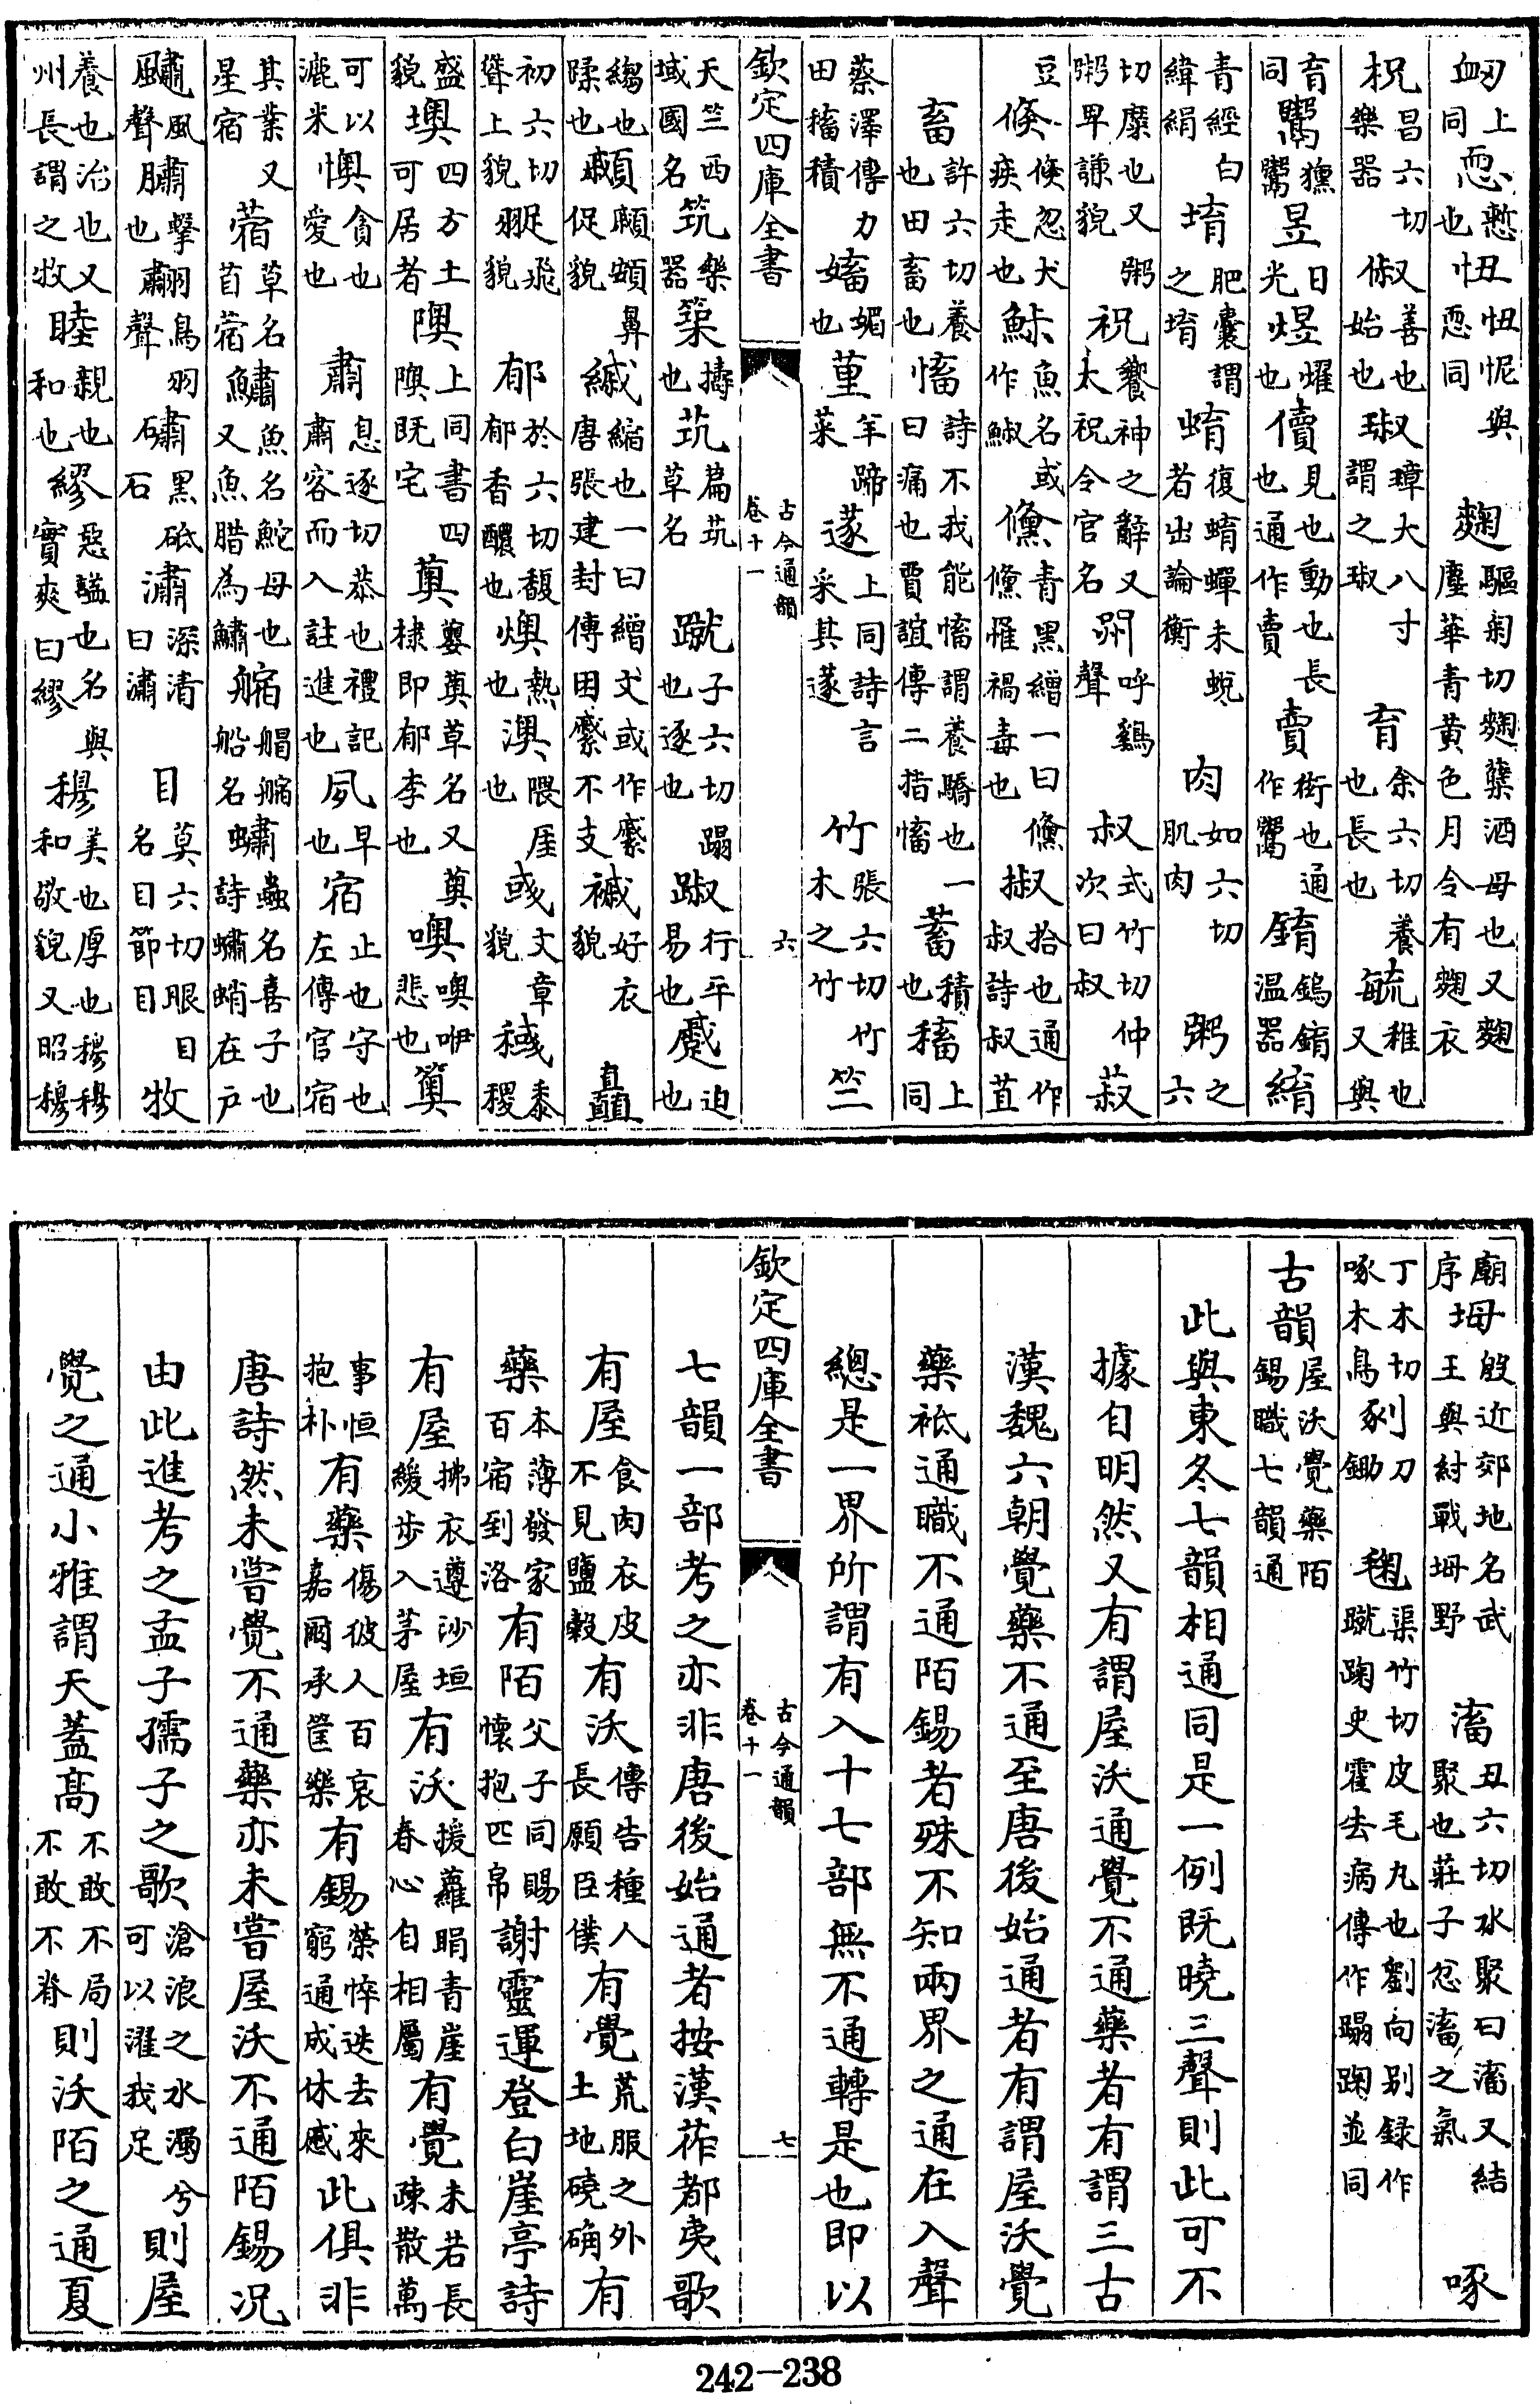 衂上同恧慙也忸忸怩與恧同麴驅匊切麴櫱酒母也又麴塵華青黄色月令有麴衣
柷昌六切樂器俶善也始也琡璋大八寸謂之琡育余六切養也長也毓稚也又與
育同鬻獯鬻昱日光煜燿也儥見也動也長也通作賣賣衒也通作鬻錥鎢錥温器䋭
青經白緯絹堉肥囊謂之堉蜟復蜟蟬未蛻者出論衡肉如六切肌肉粥之六
切糜也又粥粥卑謙貌祝饗神之辭又太祝令官名喌呼鷄聲叔式竹切仲次曰叔菽
豆倏倏忽犬疾走也鮛魚名或作䱙儵青黑繒一曰儵儵惟禍毒也掓拾也通作叔詩叔苴
畜許六切養也田畜也慉詩不我能慉謂養驕也一曰痛也賈誼傳二指慉蓄積也稸上同
蔡澤傳力田稸積嬸媚也堇羊蹄菜蓫上同詩言采其蓫竹張六切竹木之竹竺
欽定四庫全書 古今通韻 卷十一 六
天竺西域國名筑樂器築擣也茿萹茿草名蹴子六切蹋也逐也踧行平易也蹙迫也
縐也蹂也顣顣頞鼻促貌縬縮也一曰繒文或作縻唐張建封傳困縻不支䙘好衣貌矗
初六切聳上貌翍飛貌郁於六切馥郁香醲也燠熱也澳隈厓也彧文章貌稶黍稷
盛貌墺四方土可居者隩上同書四隩既宅薁蘡薁草名又薁棣即郁李也噢噢咿悲也䉛
可以漉米懊貪也愛也肅息逐切恭也禮記肅容而入註進也夙早也宿止也守也左傳官宿
其業又星宿蓿草名苜蓿鱐魚名鮀母也又魚腊為鱐艒艒縮船名蠨蟲名喜子也詩蠨蛸在戶
飍風聲䐹擊也翽鳥羽聲磟黑砥石潚深清曰潚目莫六切眼目名目節目牧
養也治也又州長謂之牧睦親也和也繆惡諡也名與實爽曰繆穆美也厚也穆穆和敬貌又昭穆
廟序坶殷近郊地名武王與紂戰坶野滀丑六切水聚曰滀又結聚也莊子忿滀之氣啄
丁木切啄木鳥㓸刀鋤毱渠竹切皮毛丸也劉向别録作蹴踘史霍去病傳作蹋踘並同
古韻屋沃覺藥陌錫職七韻通
此與東冬七韻相通同是一例既曉三聲則此可不
據自明然又有謂屋沃通覺不通藥者有謂三古
漢魏六朝覺藥不通至唐後始通者有謂屋沃覺
藥祗通職不通陌錫者殊不知兩界之通在入聲
總是一界所謂有入十七部無不通轉是也即以
欽定四庫全書 古今通韻 卷十一 七
七韻一部考之亦非唐後始通者按漢莋都夷歌
有屋食肉衣皮不見鹽穀有沃傳告種人長願臣僕有覺荒服之外土地磽确有
藥本薄發家百宿到洛有陌父子同賜懷抱匹帛謝靈運登白崖亭詩
有屋拂衣遵沙垣緩步入茅屋有沃援蘿睸青崖春心自相屬有覺未若長疎散萬
事恒抱朴有藥傷彼人百哀嘉爾承筐樂有錫榮悴迭去來窮通成休慼此俱非
唐詩然未嘗覺不通藥亦未嘗屋沃不通陌錫況
由此進考之孟子孺子之歌滄浪之水濁兮可以濯我足則屋
覺之通小雅謂天蓋髙不敢不局不敢不脊則沃陌之通夏
242－238